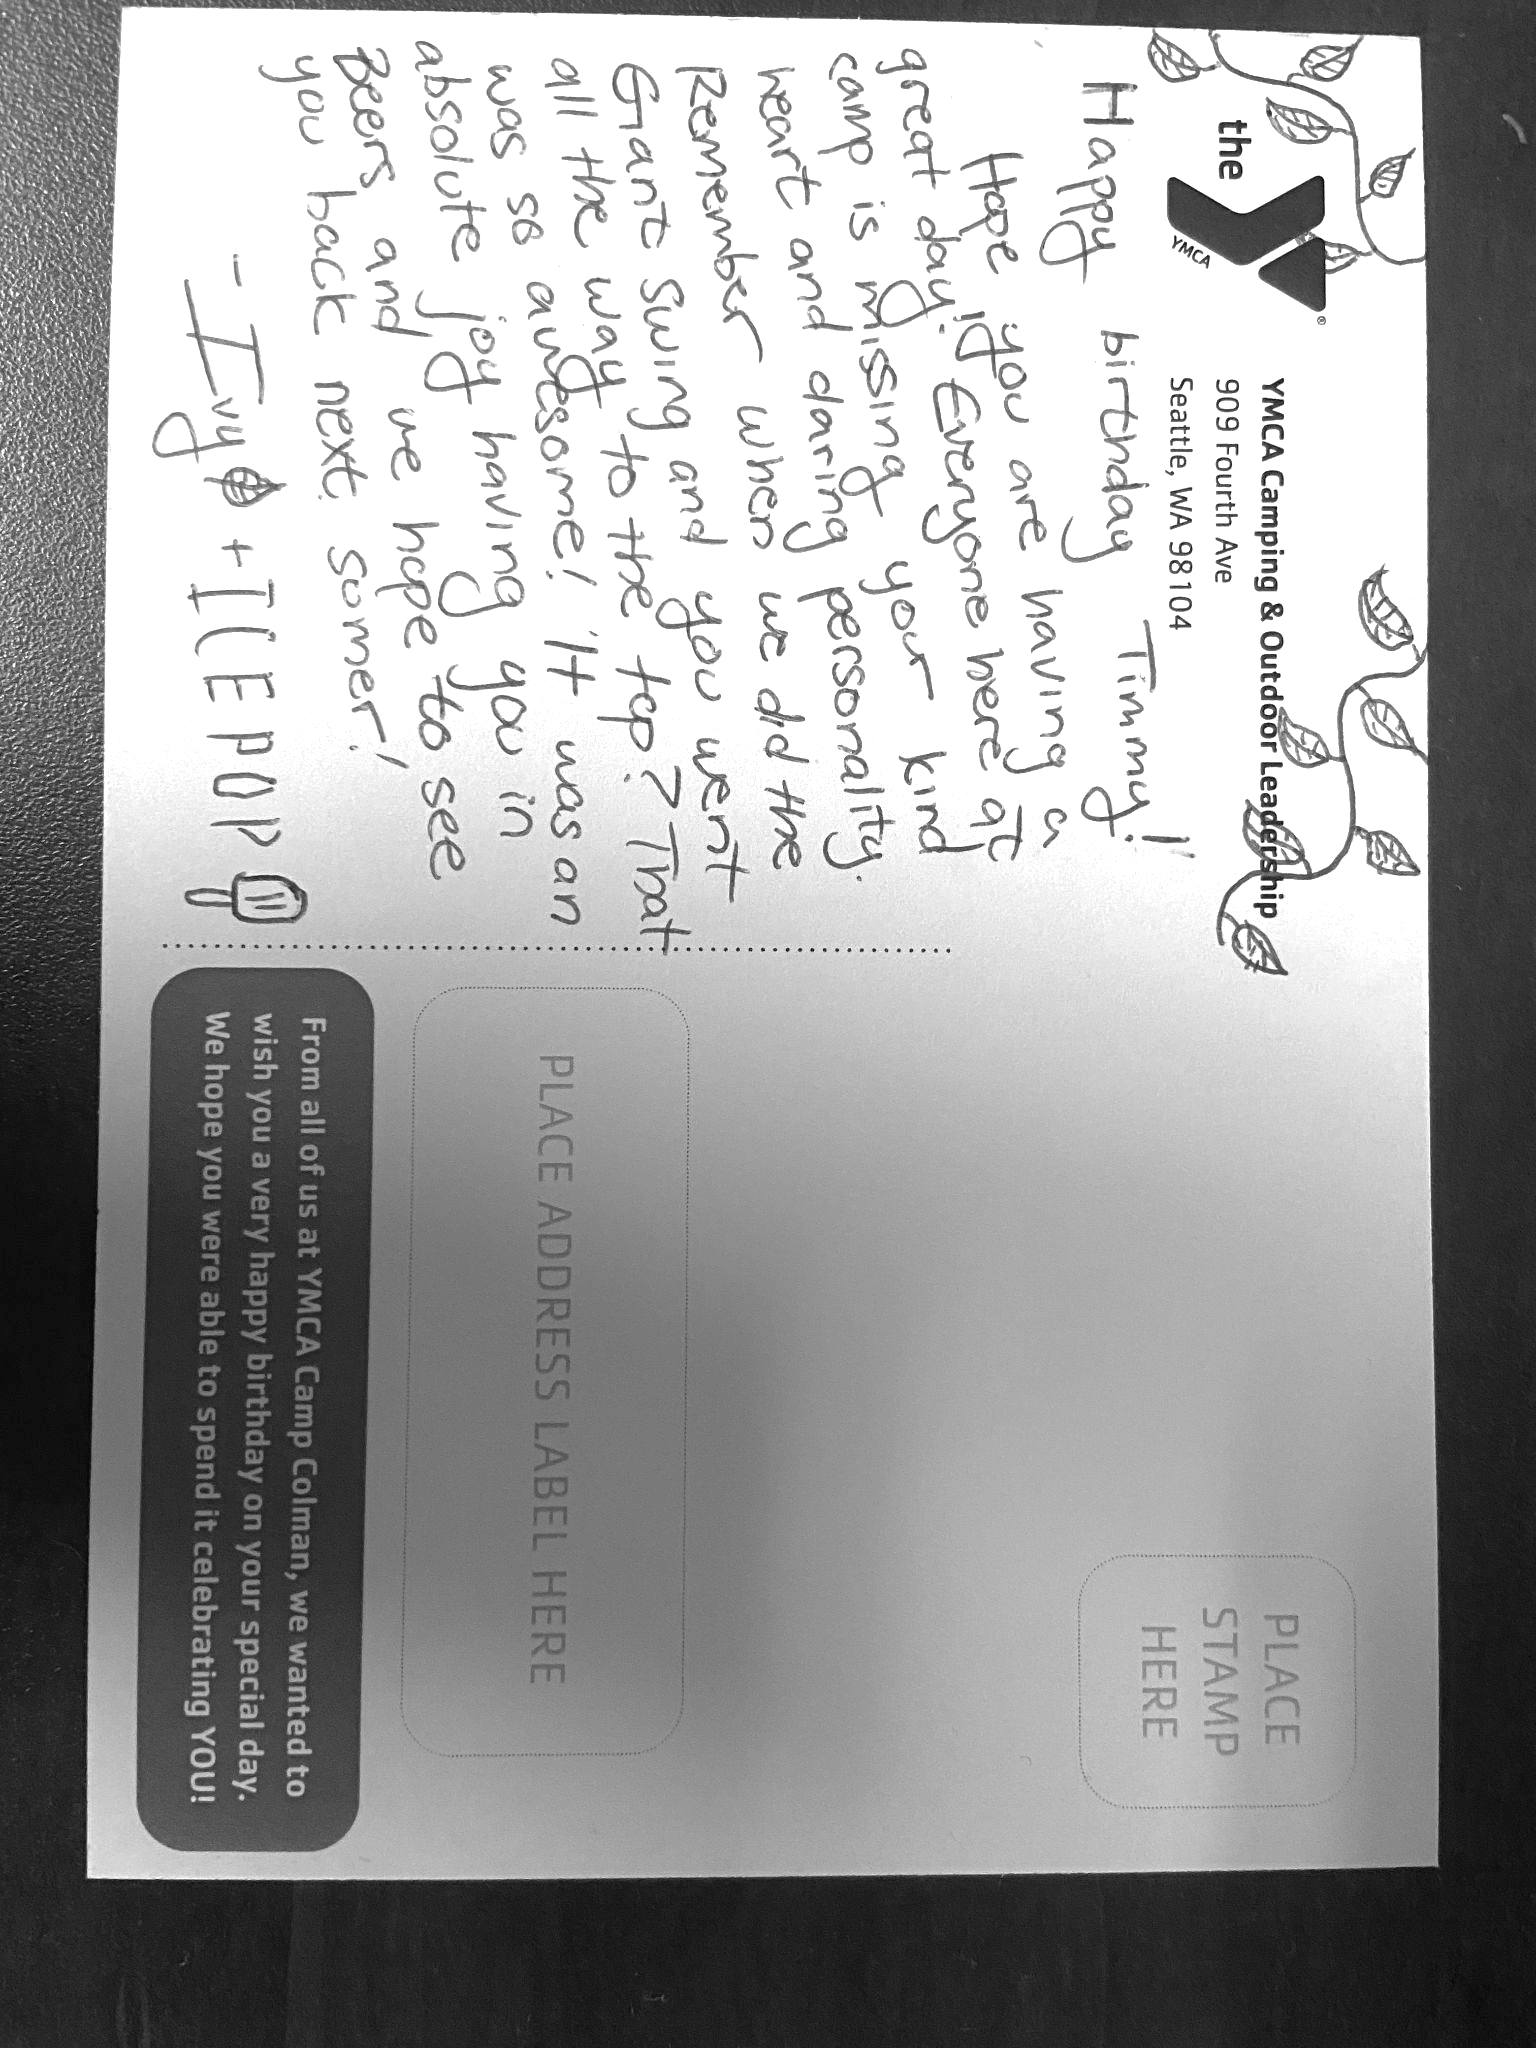 the
YMCA
YMCA Camping & Outdoor Leadership
909 Fourth Ave
Seattle, WA 98104
Happy birthday Timmy!
Hope you are having a
great day! Everyone here at
camp is missing your kind
heart and daring personality.
Remember when we did the
Giant swing and you went
all the way to the top? That
was so awesome! It was an
absolute joy having you in
Beers and we hope to see
you back next somer!
- Ivy + ICEPOP
PLACE
STAMP
HERE
PLACE ADDRESS LABEL HERE
From all of us at YMCA Camp Colman, we wanted to
wish you a very happy birthday on your special day.
We hope you were able to spend it celebrating YOU!